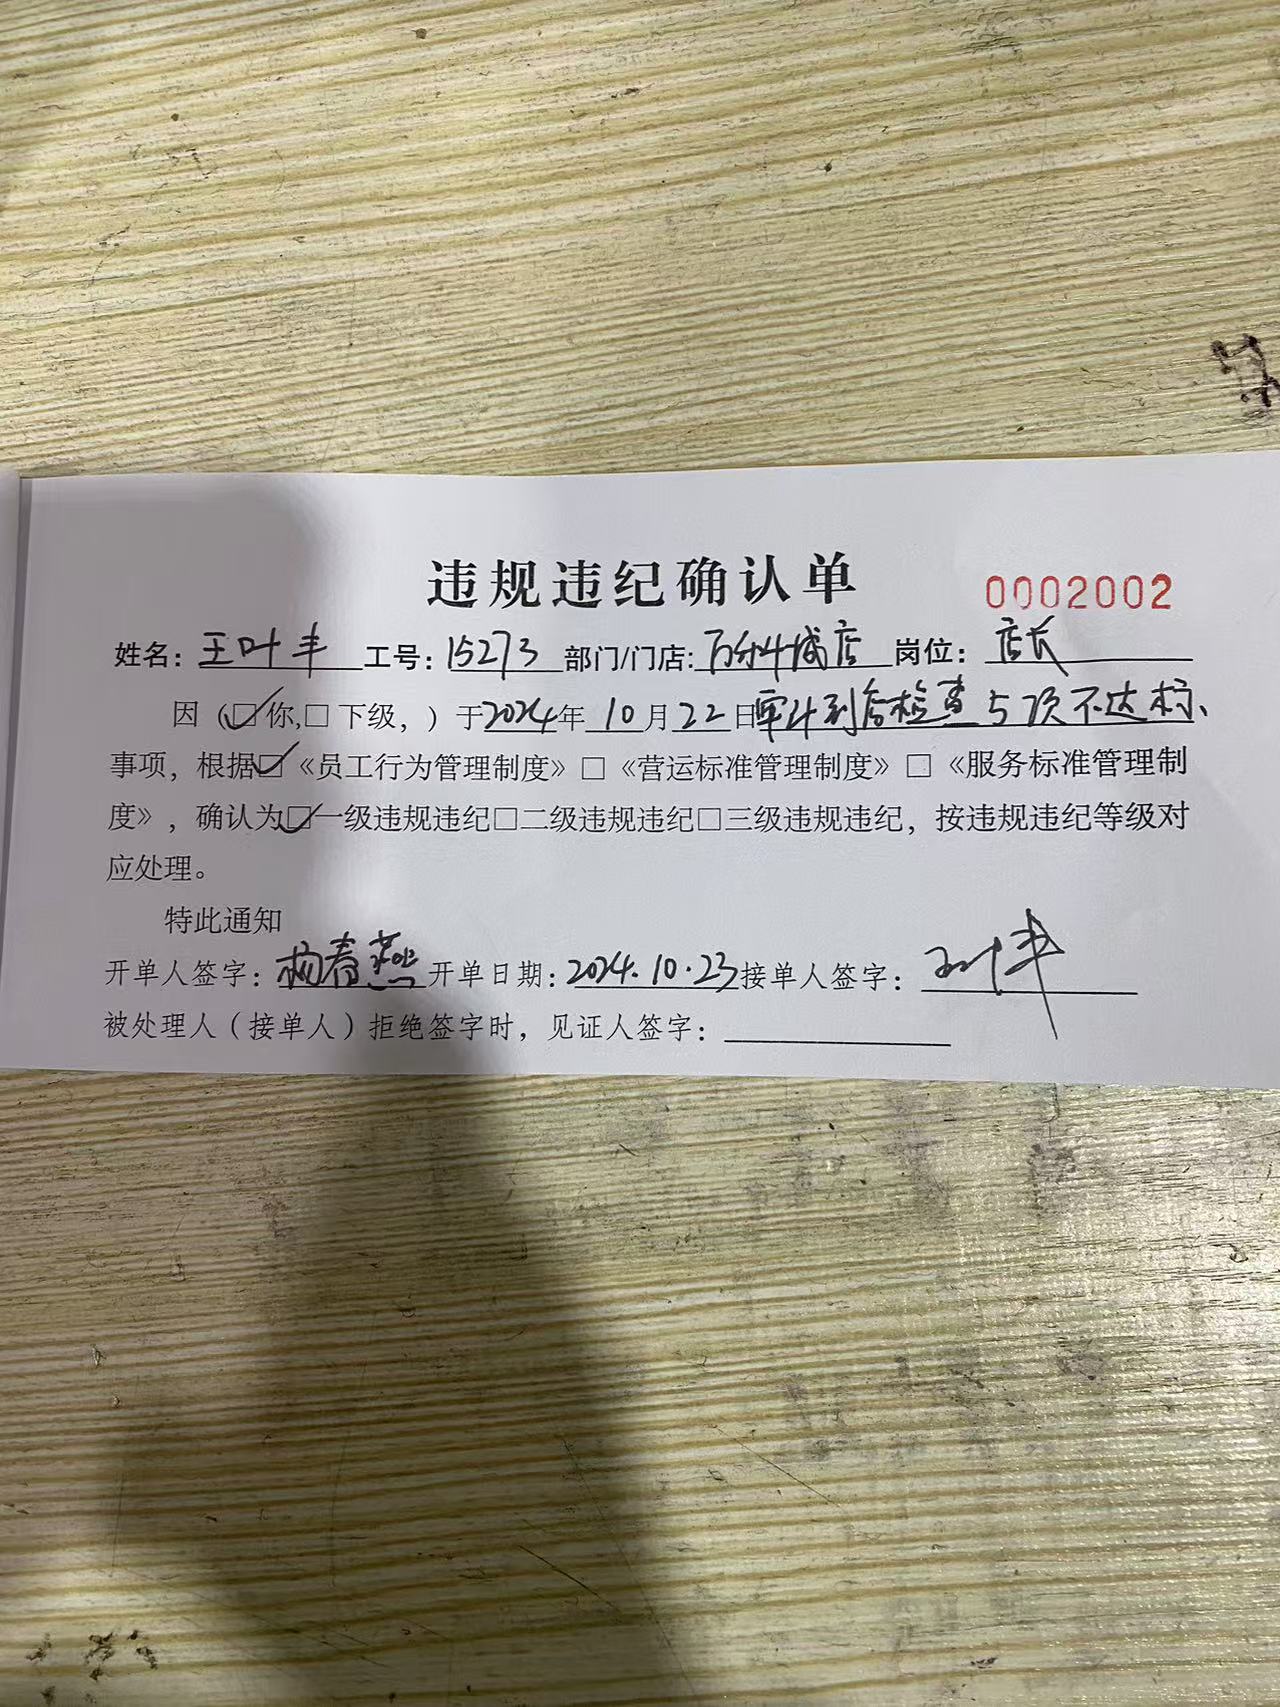 违规违纪确认单 0002002
姓名：王叶丰 工号：15273 部门/门店：万分城店 岗位：店长
因（☑你，□下级，）于2024年10月22日审计到店检查5项不达标、
事项，根据☑《员工行为管理制度》□《营运标准管理制度》□《服务标准管理制
度》，确认为☑一级违规违纪□二级违规违纪□三级违规违纪，按违规违纪等级对
应处理。
特此通知
开单人签字：杨春燕 开单日期：2024.10.23 接单人签字：王叶丰
被处理人（接单人）拒绝签字时，见证人签字：